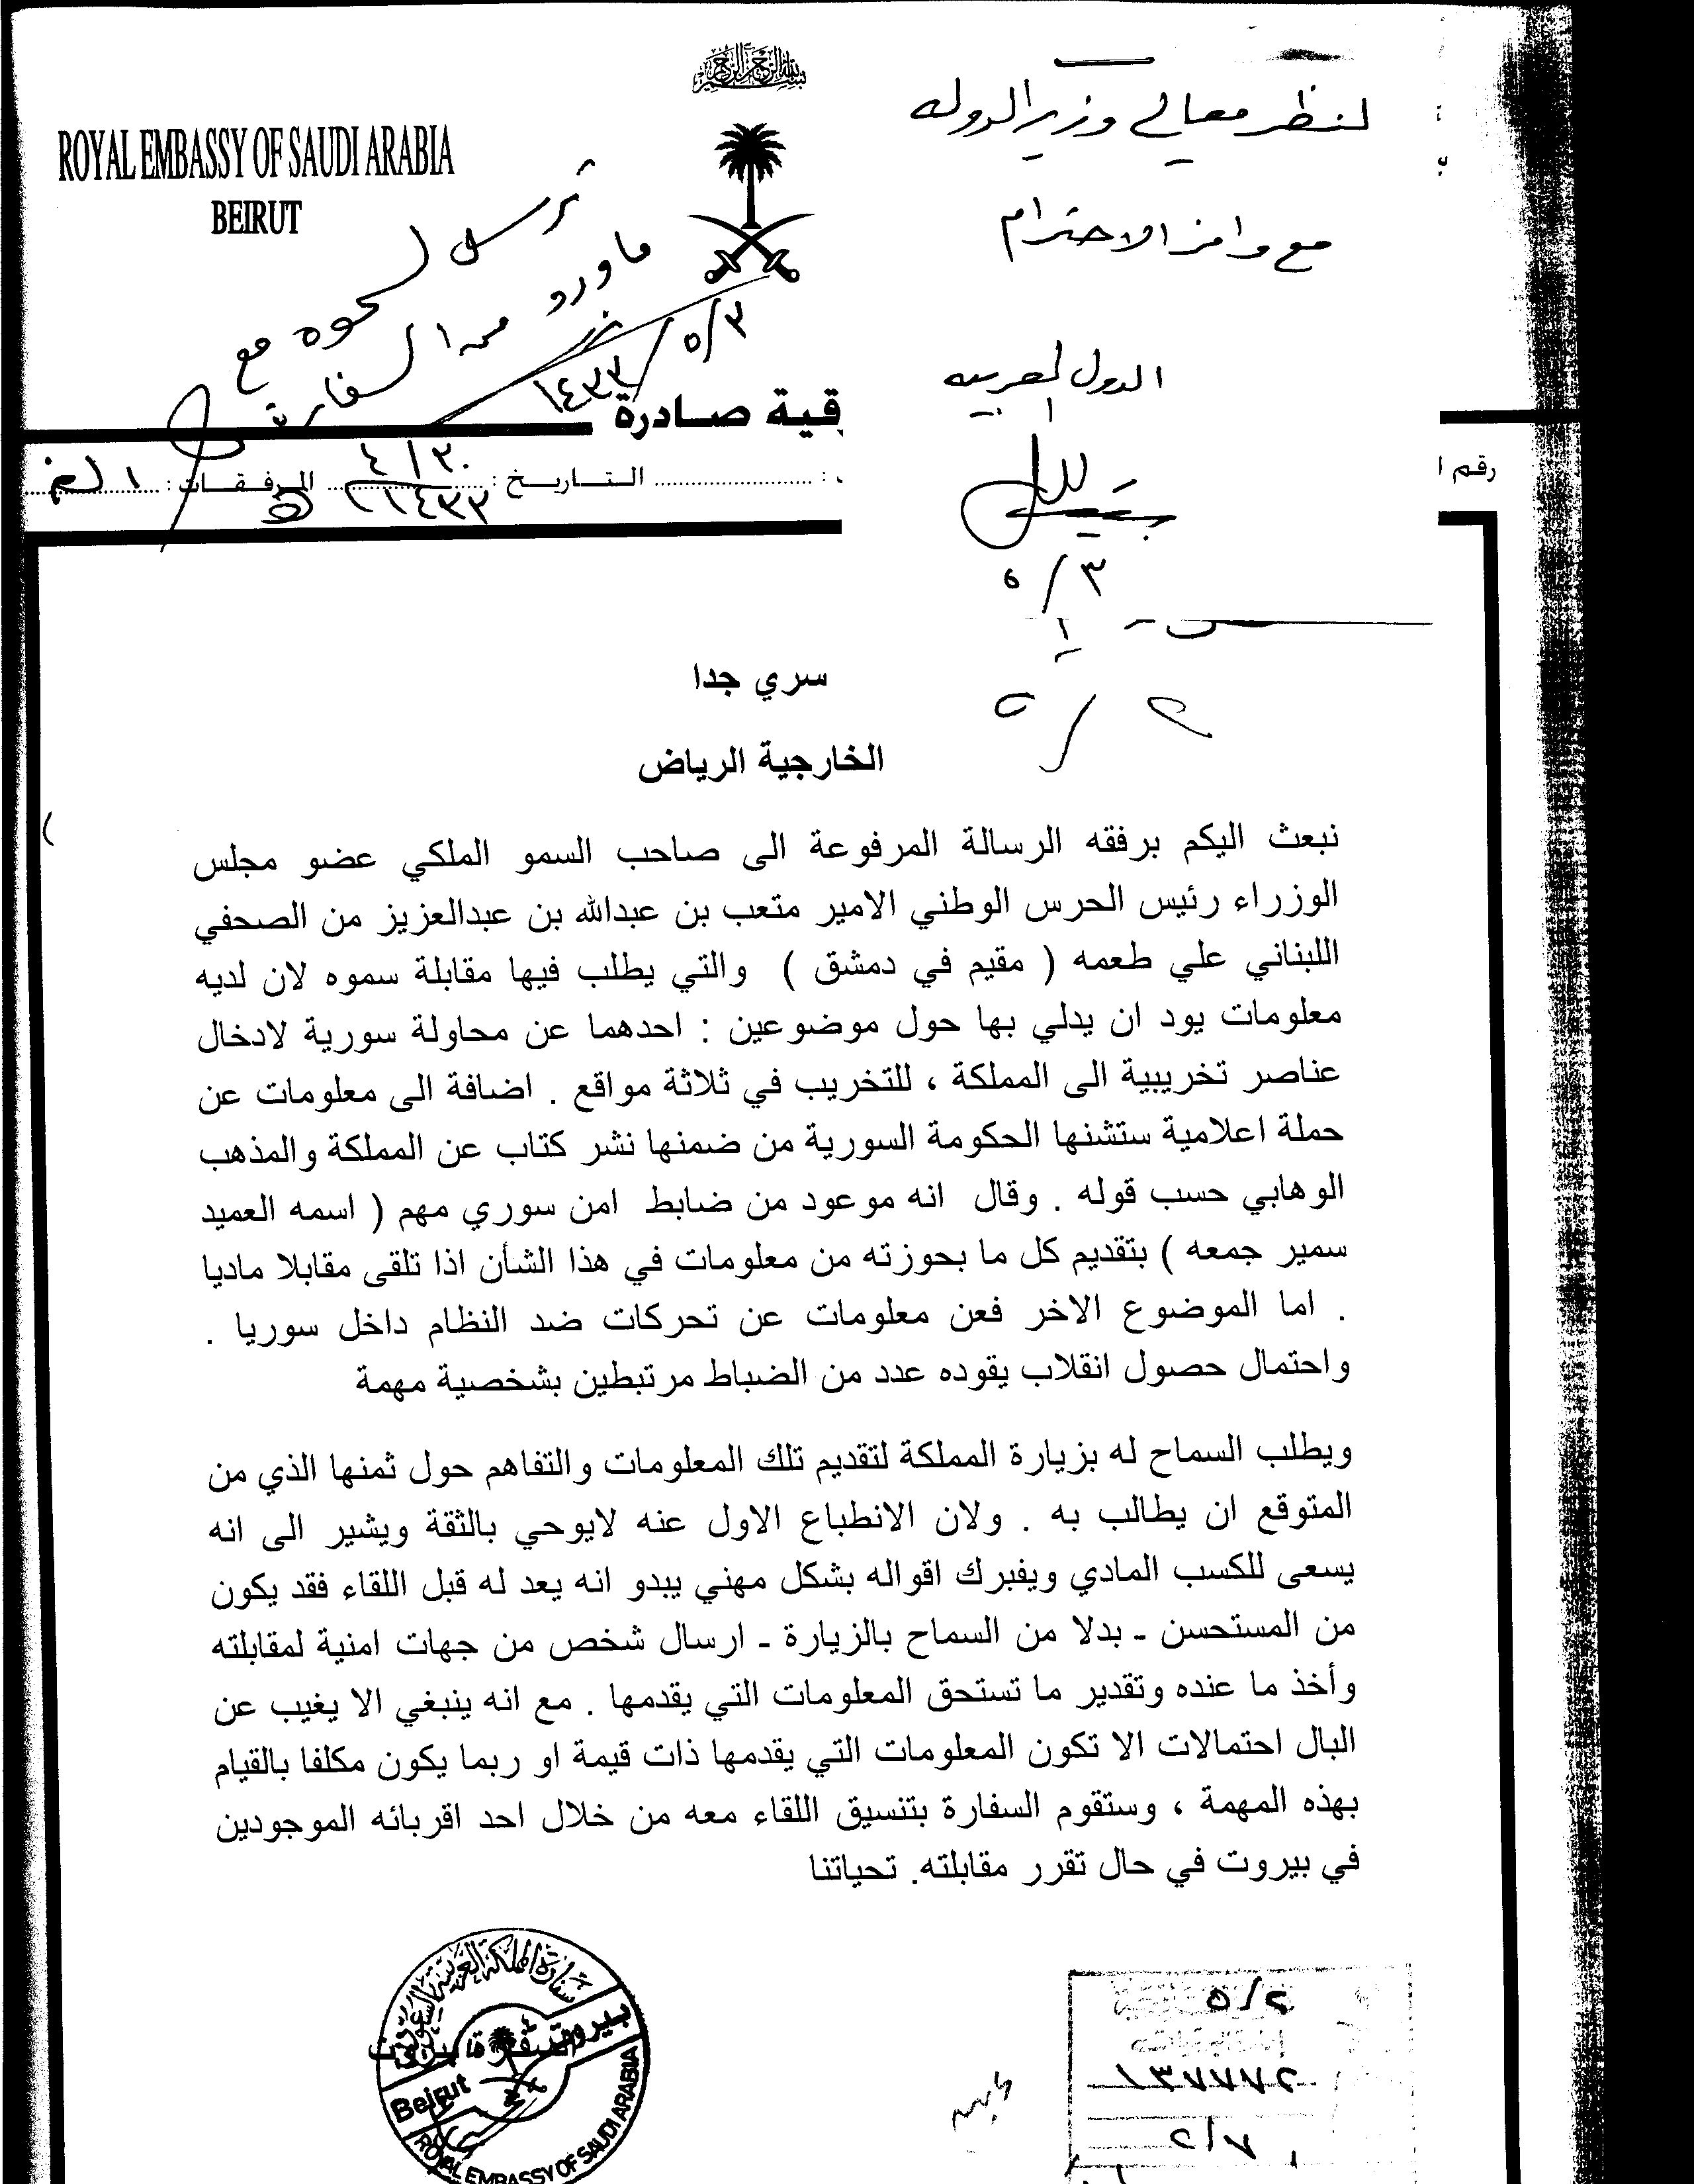 بسم الله الرحمن الرحيم
ROYAL EMBASSY OF SAUDI ARABIA
BEIRUT
لنظر معالي وزير الدولة
مع وافر الاحترام
الدول العربية
٥/٣
ترسل لسموه مع
ما ورد من السفارة
٥/٣
١٤٣٣
قية صادرة
رقم ا
التاريخ : ٤/٣٠ ١٤٣٣
المرفقات :
سري جدا
٥/٢
الخارجية الرياض
نبعث اليكم برفقه الرسالة المرفوعة الى صاحب السمو الملكي عضو مجلس
الوزراء رئيس الحرس الوطني الامير متعب بن عبدالله بن عبدالعزيز من الصحفي
اللبناني علي طعمه ( مقيم في دمشق ) والتي يطلب فيها مقابلة سموه لان لديه
معلومات يود ان يدلي بها حول موضوعين : احدهما عن محاولة سورية لادخال
عناصر تخريبية الى المملكة ، للتخريب في ثلاثة مواقع . اضافة الى معلومات عن
حملة اعلامية ستشنها الحكومة السورية من ضمنها نشر كتاب عن المملكة والمذهب
الوهابي حسب قوله . وقال انه موعود من ضابط امن سوري مهم ( اسمه العميد
سمير جمعه ) بتقديم كل ما بحوزته من معلومات في هذا الشأن اذا تلقى مقابلا ماديا
. اما الموضوع الاخر فعن معلومات عن تحركات ضد النظام داخل سوريا .
واحتمال حصول انقلاب يقوده عدد من الضباط مرتبطين بشخصية مهمة
ويطلب السماح له بزيارة المملكة لتقديم تلك المعلومات والتفاهم حول ثمنها الذي من
المتوقع ان يطالب به . ولان الانطباع الاول عنه لايوحي بالثقة ويشير الى انه
يسعى للكسب المادي ويفبرك اقواله بشكل مهني يبدو انه يعد له قبل اللقاء فقد يكون
من المستحسن ـ بدلا من السماح بالزيارة ـ ارسال شخص من جهات امنية لمقابلته
وأخذ ما عنده وتقدير ما تستحق المعلومات التي يقدمها . مع انه ينبغي الا يغيب عن
البال احتمالات الا تكون المعلومات التي يقدمها ذات قيمة او ربما يكون مكلفا بالقيام
بهذه المهمة ، وستقوم السفارة بتنسيق اللقاء معه من خلال احد اقربائه الموجودين
في بيروت في حال تقرر مقابلته. تحياتنا
سفارة المملكة العربية السعودية
بيروت
Beirut
ROYAL EMBASSY OF SAUDI ARABIA
٥/٢
١٣٧٧٧٢
٢/٧